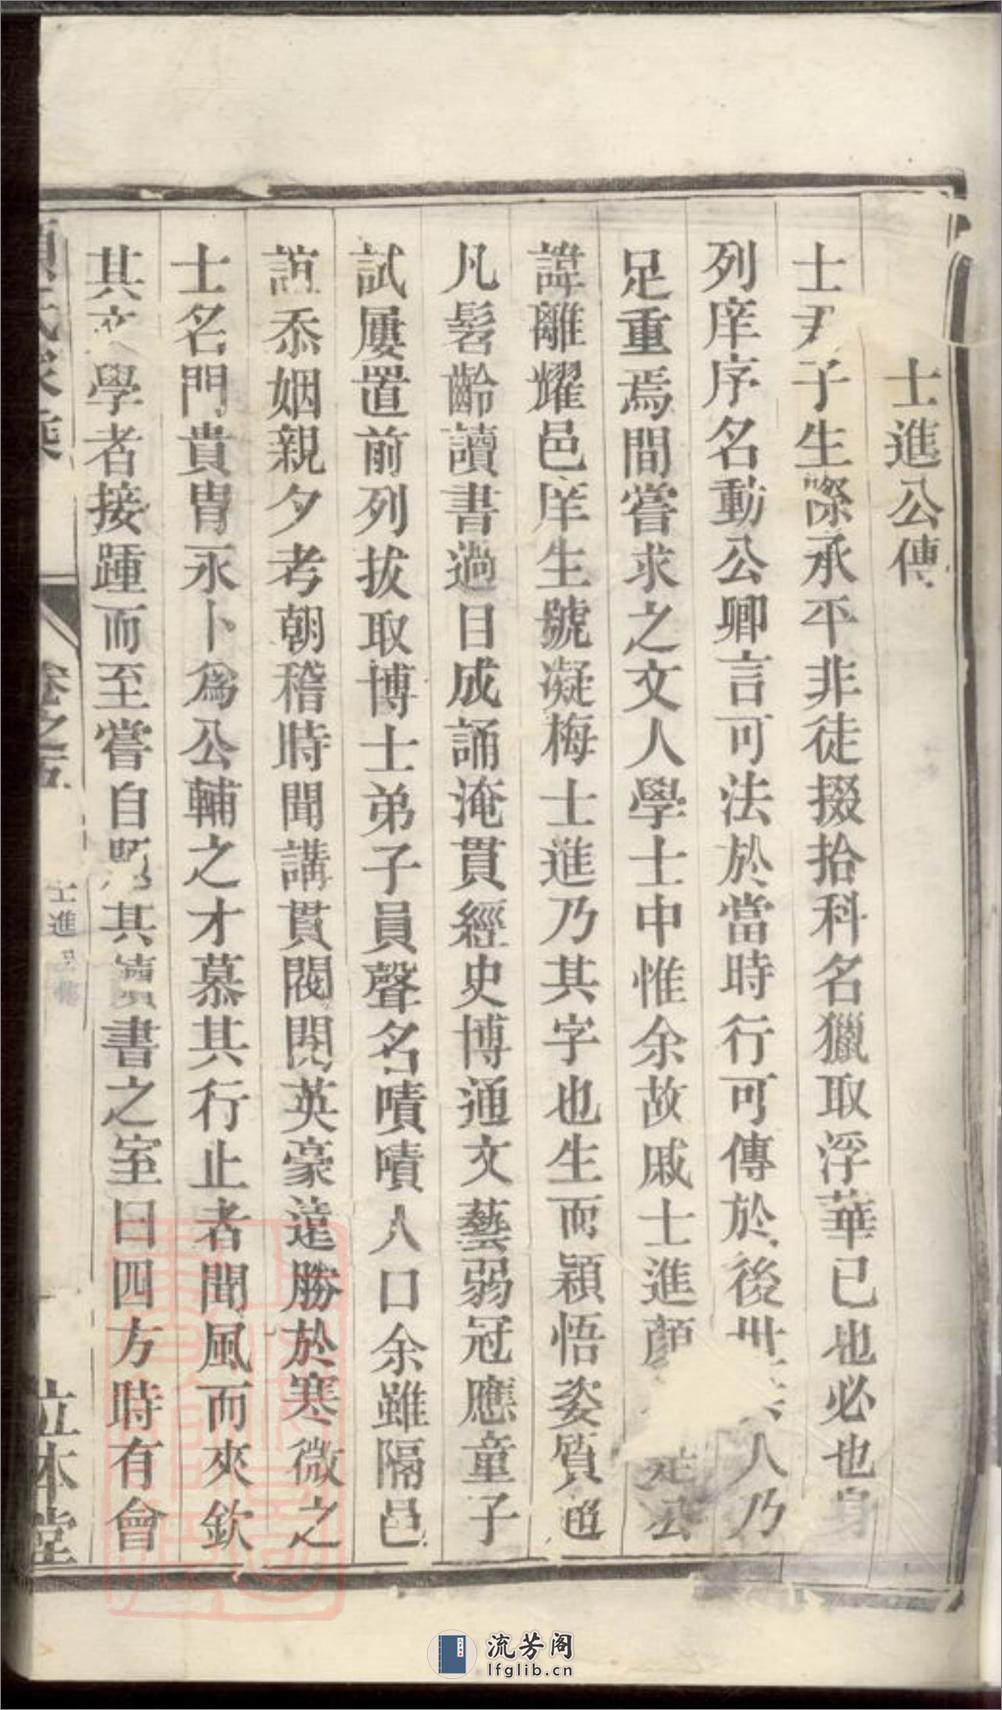 士進公傳
士君子生際承平非徒掇拾科名獵取浮華已也必也身
列庠序名動公卿言可法於當時行可傳於後世其人乃
足重焉間嘗求之文人學士中惟余故戚士進顏公
諱離耀邑庠生號凝梅士進乃其字也生而穎悟姿質過
凡髫齡讀書過目成誦淹貫經史博通文藝弱冠應童子
試屢置前列拔取博士弟子員聲名嘖嘖人口余雖隔邑
誼忝姻親夕考朝稽時聞講貫閥閱英豪遠勝於寒微之
士名門貴胄永卜為公輔之才慕其行止者聞風而來欽
其文學者接踵而至嘗自題其讀書之室曰四方時有會
顏氏家乘
卷之
士進公傳
立本堂
流芳阁
lfglib.cn